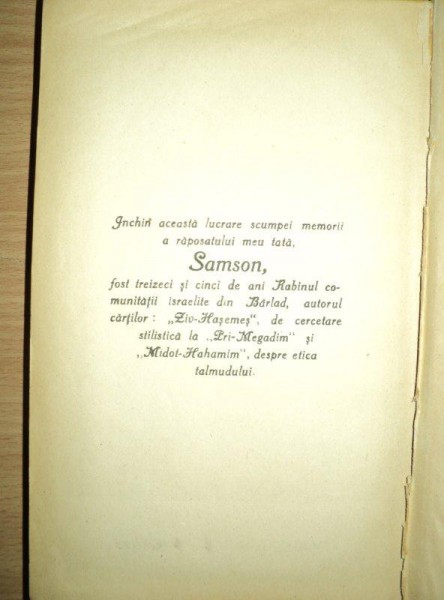 Închin această lucrare scumpei memorii
a răposatului meu tată,
Samson,
fost treizeci și cinci de ani Rabinul co-
munității israelite din Bârlad, autorul
cărților: „Ziv-Hașemeș", de cercetare
stilistică la „Pri-Megadim" și
„Midot-Hahamim", despre etica
talmudului.